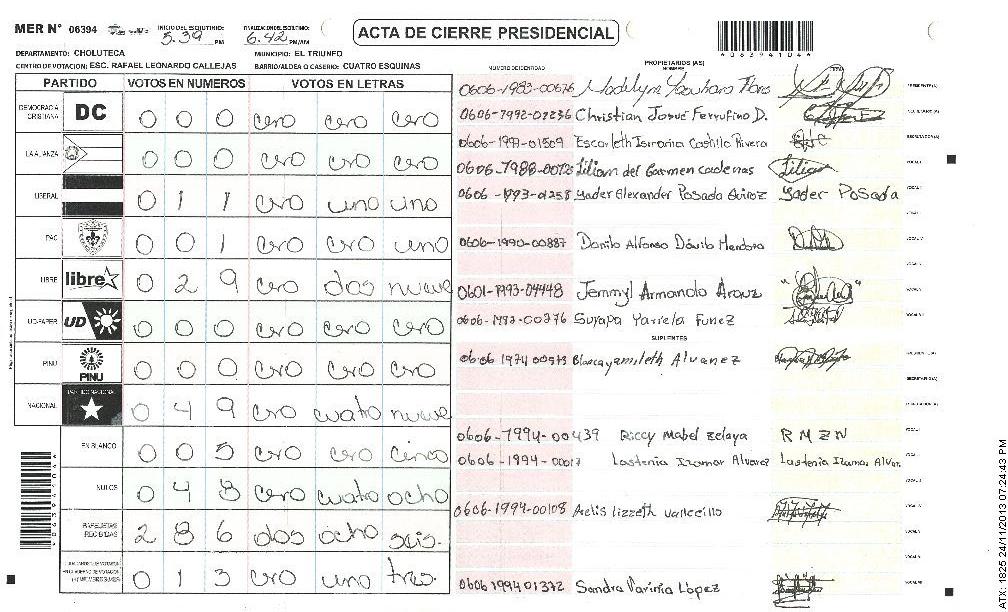 MER N° 06394 INICIO DEL ESCRUTINIO: 5.39 PM FINALIZACION DEL ESCRUTINIO: 6.42 PM/AM
ACTA DE CIERRE PRESIDENCIAL
063941044
DEPARTAMENTO: CHOLUTECA MUNICIPIO: EL TRIUNFO
CENTRO DE VOTACION: ESC. RAFAEL LEONARDO CALLEJAS BARRIO/ALDEA O CASERIO: CUATRO ESQUINAS
PARTIDO VOTOS EN NUMEROS VOTOS EN LETRAS
DEMOCRACIA CRISTIANA DC 0 0 0 cero cero cero
LA ALIANZA 0 0 0 cero cero cero
LIBERAL 0 1 1 cero uno uno
PAC 0 0 1 cero cero uno
LIBRE libre 0 2 9 cero dos nueve
UD-FAPER UD 0 0 0 cero cero cero
PINU PINU 0 0 0 cero cero cero
NACIONAL PARTIDO NACIONAL 0 4 9 cero cuatro nueve
EN BLANCO 0 0 5 cero cero cinco
NULOS 0 4 8 cero cuatro ocho
PAPELETAS RECIBIDAS 2 8 6 dos ocho seis.
0 1 3 cero uno tres.
NUMERO DE IDENTIDAD PROPIETARIOS (AS) NOMBRE
0606-1983-00676 PRESIDENTE(A)
0606-7992-02236 Christian Josué Ferrufino D. SECRETARIO(A)
0606-1991-01509 Escarleth Ismania Castillo Rivera ESCRUTADOR(A)
Lilian del Carmen cadenas Lilian VOCAL I
0606-1993-01258 Yader Alexander Posada Quiroz Yader Posada
0606-1990-00887 Danilo Alfonso Dávila Mendoza
0601-1993-04448 Jemmyl Armando Arauz
Suyapa Yariela Funez
SUPLENTES
0606 1974 00573 Blanca yamileth Alvarez PRESIDENTE(A)
SECRETARIO(A)
ESCRUTADOR(A)
0606-1994-00439 Riccy Mabel Zelaya RMZN
0606-1994-00017 Lastenia Izamar Alvarez Lastenia Izamar Alvar.
0606-1994-00108 Aelis lizzeth vallecillo
0606 1994 01372 Sandra Varinia López
ATX: 1825 24/11/2013 07:24:43 PM